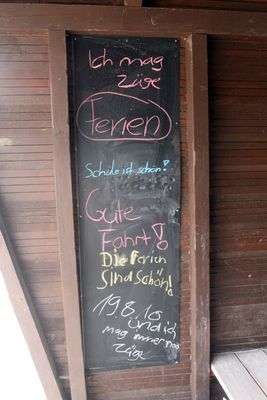 Ich mag
züge
Ferien
Schule ist schön!
Gute
Fahrt!
Die Ferien
Sind Schön!
19.8.10
ünd ich
mag immer noch
züge